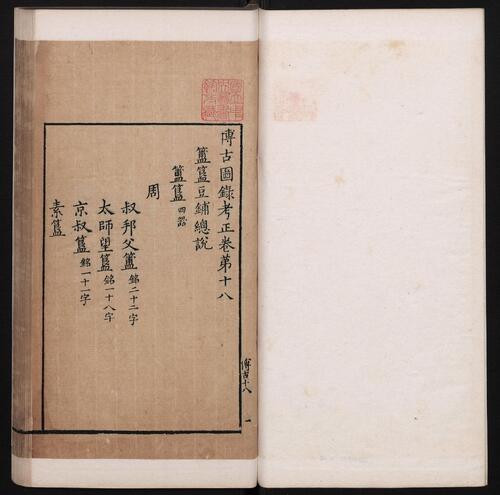 博古圖錄考正卷第十八
簠簋豆鋪總說
簠簋四器
周
叔邦父簠銘二十二字
太師望簋銘一十八字
京叔簋銘一十一字
素簋
博古十八 一